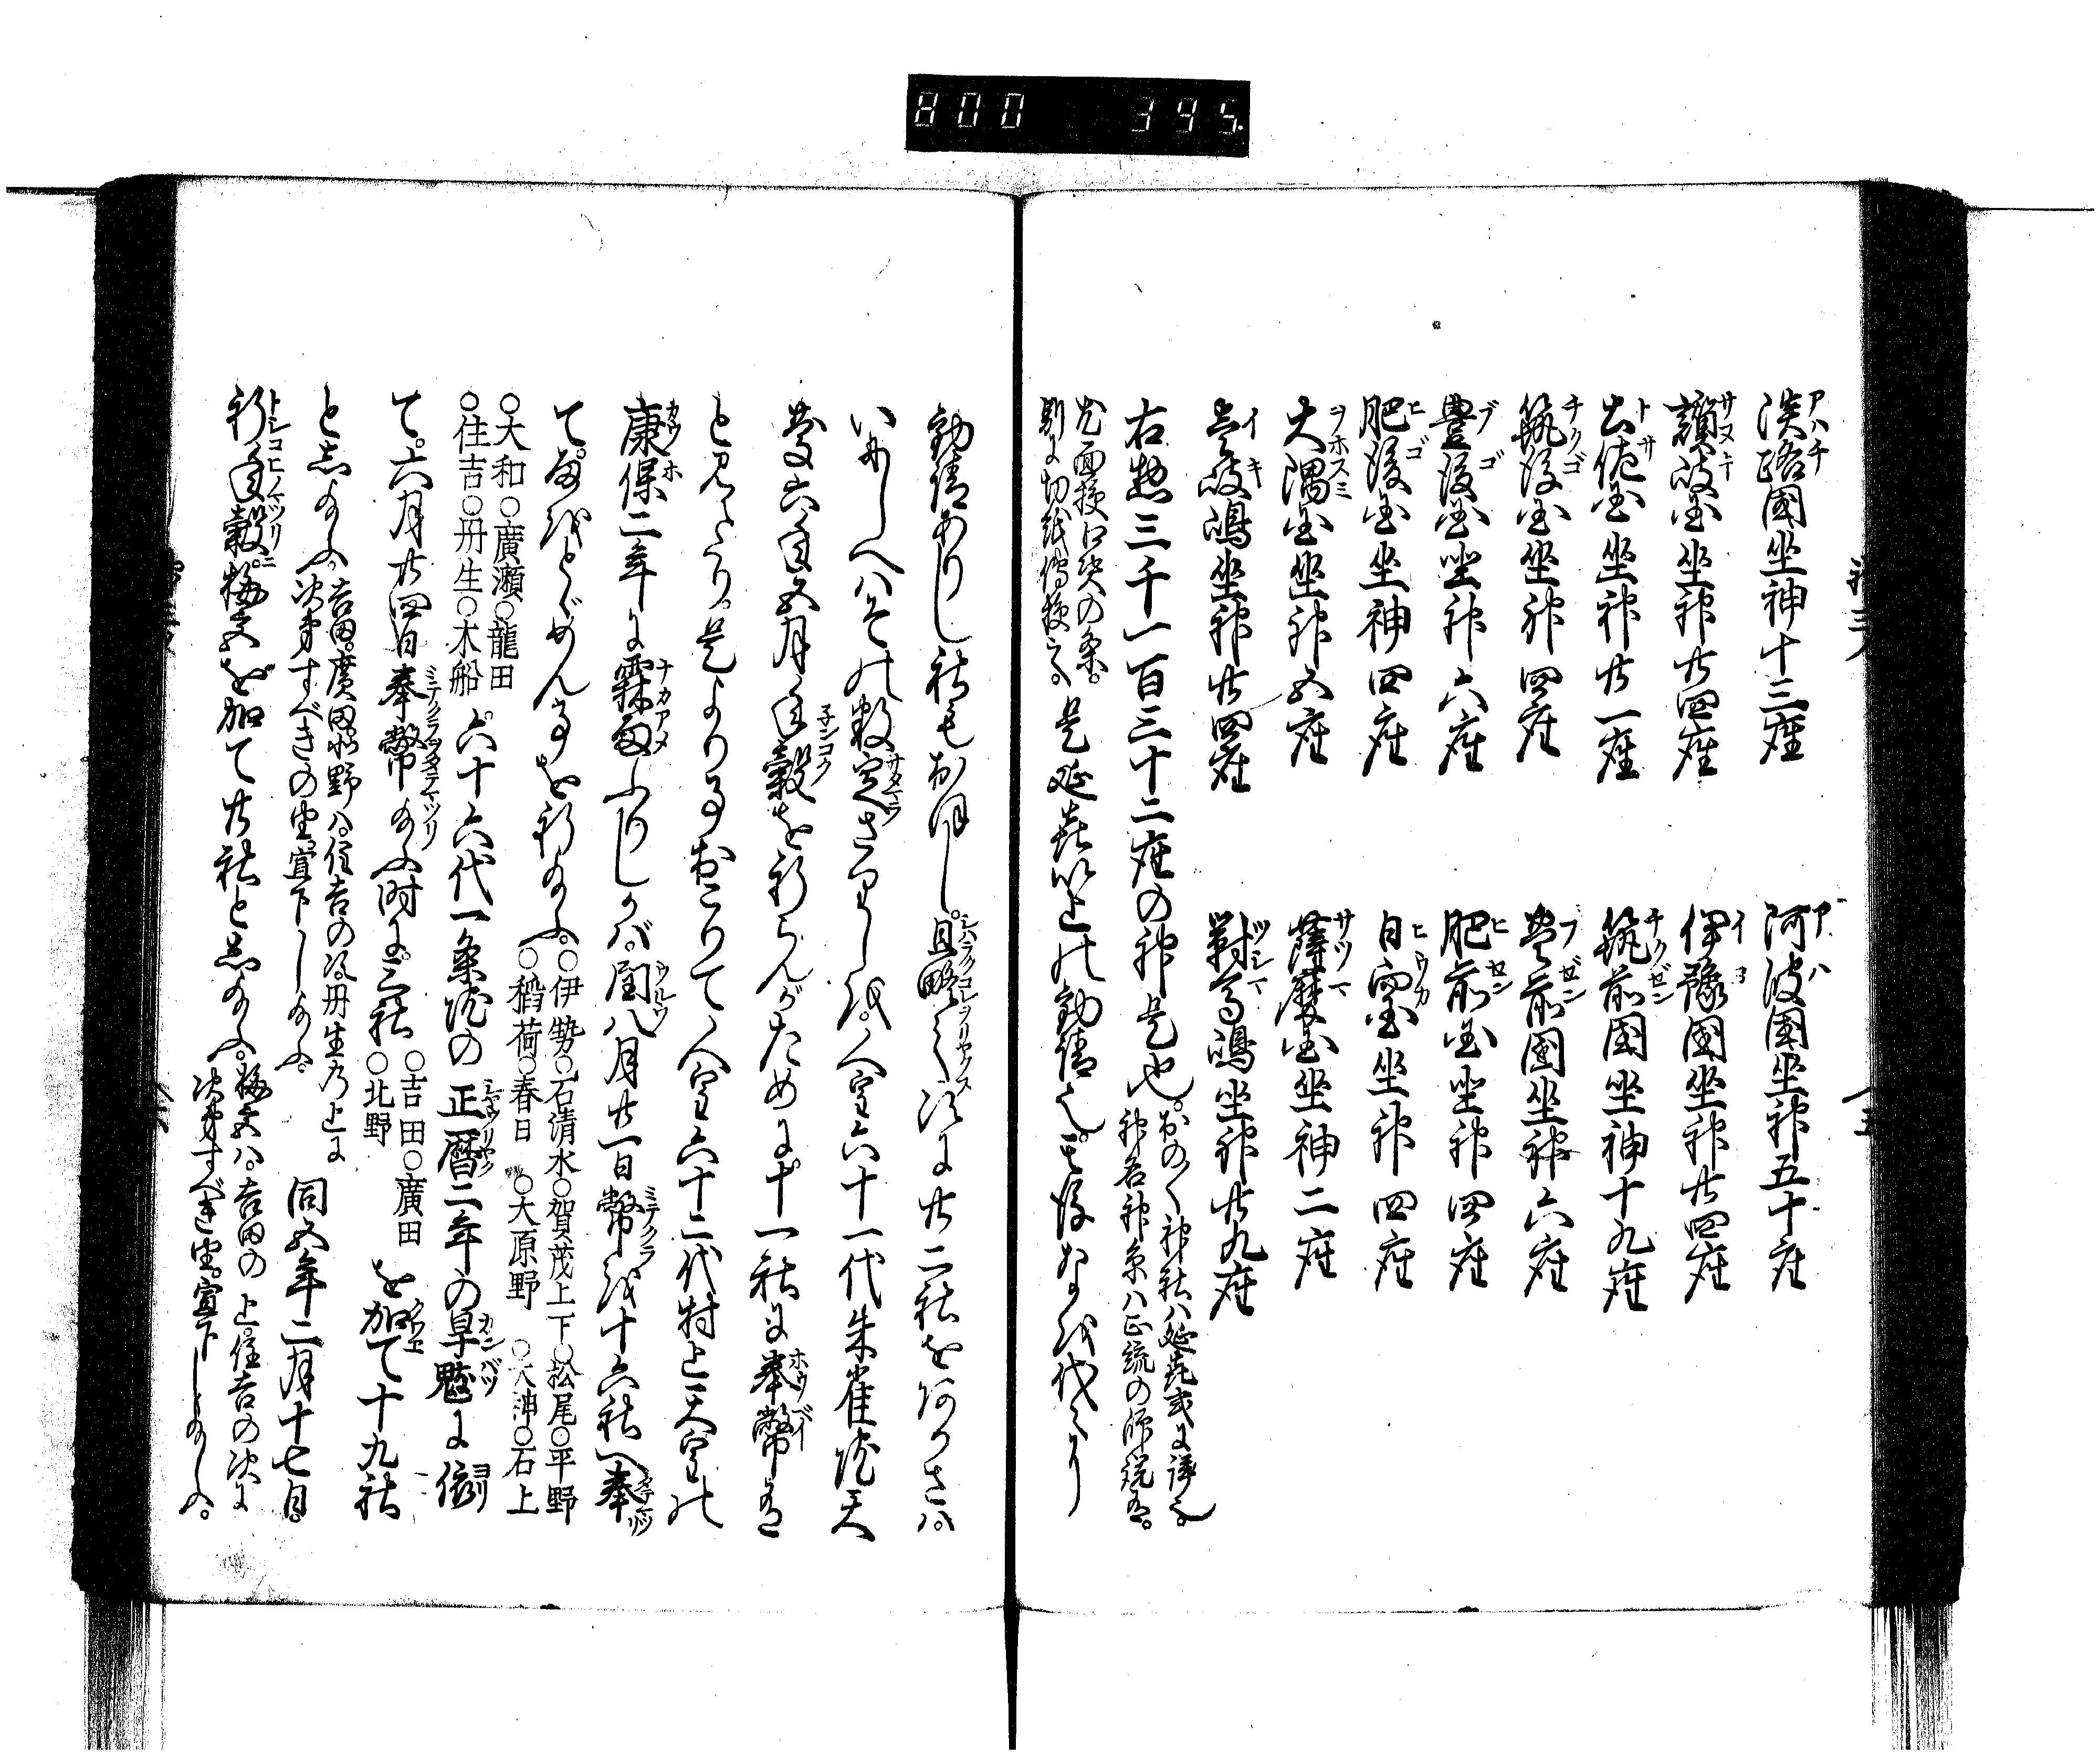 800 395
淡路國坐神十三座
阿波國坐神五十座
讃岐国坐神廿四座
伊豫國坐神廿四座
土佐国坐神廿一座
筑前国坐神十九座
筑後国坐神四座
豊前國坐神六座
豊後国坐神六座
肥前国坐神四座
肥後国坐神四座
日向国坐神四座
大隅国坐神五座
薩摩国坐神二座
壱岐嶋坐神廿四座
對馬嶋坐神廿九座
右惣三千一百三十二座の神是也。おの〱神社ハ延喜式に詳也。
神名神系ハ正統の師説有。
尤面授口决の条。
別に切紙傳授之。是延喜以上の勧請也。其後おほ代〻に
勧請ありし社もおほし。且略之。次に廿二社をあかさハ。
いにしへハその数定さりしを。人皇六十一代朱雀院天
慶六年五月年穀を祈らんがために。十一社に奉幣有
と見えたり。是より事おこりて。人皇六十二代村上天皇の
康保二年に霖雨ふりしかバ。閏八月廿一日幣を十六社へ奉
て。雨をとゞめん事を祈給ふ。○伊勢○石清水○賀茂上下○松尾○平野
○稲荷○春日○大原野○大神○石上
○大和○廣瀬○龍田
○住吉○丹生○木船 六十六代一条院の正暦二年の旱魃に依
て。六月廿四日奉幣給ふ時に。三社○吉田○廣田
○北野 を加て十九社
と志給ふ。吉田。廣田北野ハ。住吉の次。丹生乃上に
次第すべきの由。宣下し給ふ。 同五年二月十七日。
祈年穀。梅宮を加て廿社と志給ふ。梅宮ハ。吉田の上。住吉の次に
次第すべき由。宣下し給ふ。